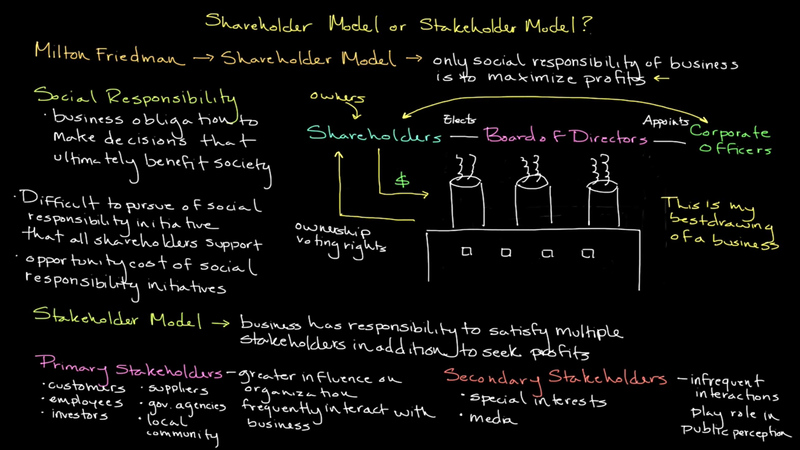 Shareholder Model or Stakeholder Model?
Milton Friedman → Shareholder Model → only social responsibility of business
is to maximize profits ←
Social Responsibility
· business obligation to
make decisions that
ultimately benefit society
· Difficult to pursue of social
responsibility initiative
that all shareholders support
· opportunity cost of social
responsibility initiatives
owners
Shareholders — Elects — Board of Directors — Appoints — Corporate
Officers
$
ownership
voting rights
This is my
best drawing
of a business
Stakeholder Model → business has responsibility to satisfy multiple
stakeholders in addition to seek profits
Primary Stakeholders — greater influence on
organization
frequently interact with
business
· customers
· employees
· investors
· suppliers
· gov. agencies
· local
community
Secondary Stakeholders — infrequent
interactions
play role in
public perception
· special interests
· media